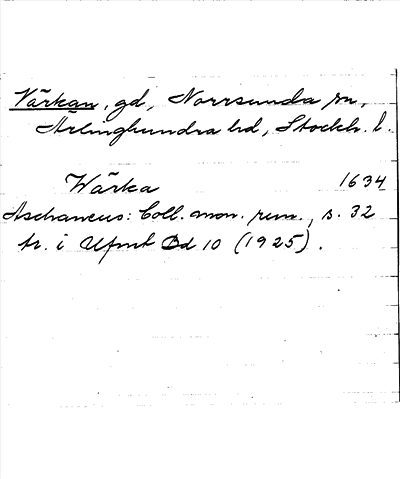 Vårkan, gd, Norrsunda sn,
Ärlinghundra hd, Stockh. l.
Wårka 1634
Aschaneus: Coll. mon. run., s. 32
tr. i Ufmt Bd 10 (1925).